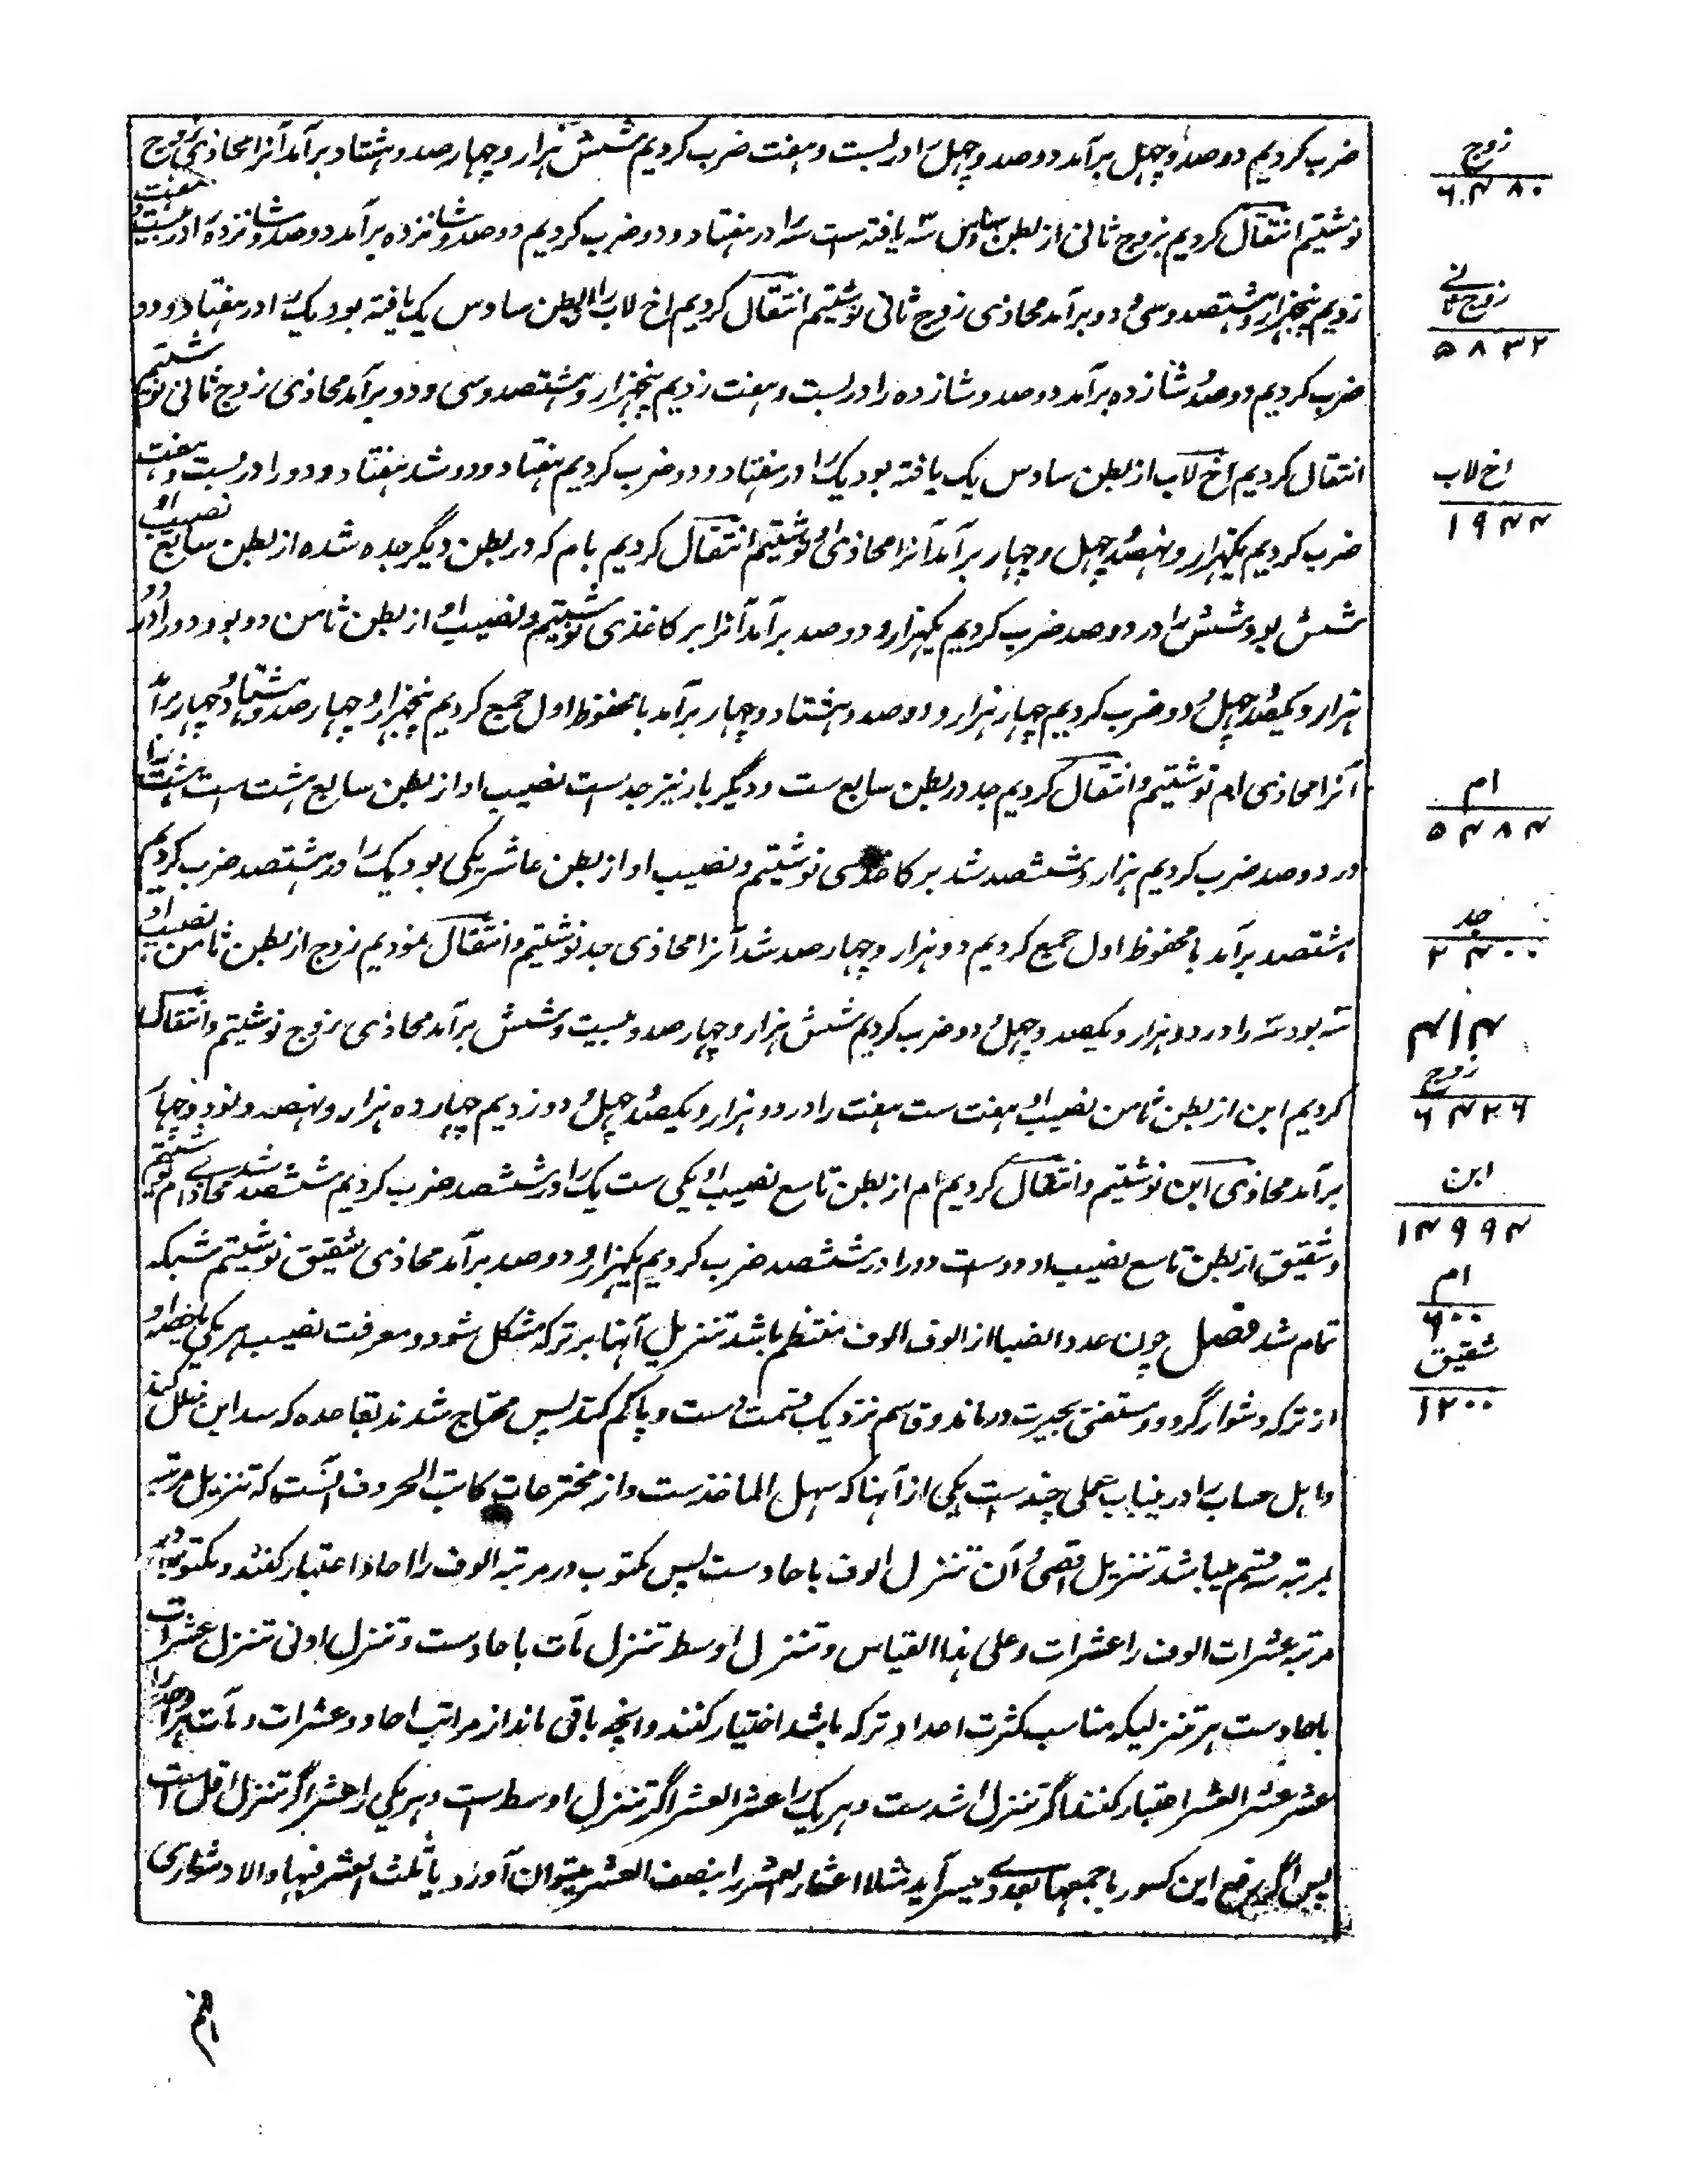 ضرب کردیم دوصد و چهل برآمد دوصد و چهل را در بست و هفت ضرب کردیم شش هزار و چهار صد و هشتاد برآمد آنرا محاذی زوج
نوشتیم انتقال کردیم بزوج ثانی از بطن سادس سه یافته ست سه را در هفتاد و دو ضرب کردیم دوصد و شانزده برآمد دوصد و شانزده را در بست و هفت
زدیم پنجهزار و هشتصد و سی و دو برآمد محاذی زوج ثانی نوشتیم انتقال کردیم اخ لاب را از بطن سادس یک یافته بود یک را در هفتاد و دو
ضرب کردیم دوصد و شانزده برآمد دوصد و شانزده را در بست و هفت زدیم پنجهزار و هشتصد و سی و دو برآمد محاذی زوج ثانی نوشتیم
انتقال کردیم اخ لاب از بطن سادس یک یافته بود یک را در هفتاد و دو ضرب کردیم هفتاد و دو شد هفتاد و دو را در بست و هفت
ضرب کردیم یکهزار و نهصد و چهل و چهار برآمد آنرا محاذی او نوشتیم انتقال کردیم بام که در بطن دیگر جده شده از بطن سابع نصیب او
شش بود شش را در دوصد ضرب کردیم یکهزار و دوصد برآمد آنرا بر کاغذی نوشتیم و نصیب او از بطن ثامن دو بود دو را در دو
هزار و یکصد و چهل و دو ضرب کردیم چهار هزار و دوصد و هشتاد و چهار برآمد با محفوظ اول جمع کردیم پنجهزار و چهار صد و هشتاد و چهار برآمد
آنرا محاذی ام نوشتیم و انتقال کردیم جد در بطن سابع ست و دیگر بار نیز جد ست نصیب او از بطن سابع هشت ست هشت را
در دوصد ضرب کردیم هزار و ششصد شد بر کاغذی نوشتیم و نصیب او از بطن عاشر یکی بود یک را در هشتصد ضرب کردیم
هشتصد برآمد با محفوظ اول جمع کردیم دو هزار و چهار صد شد آنرا محاذی جد نوشتیم و انتقال نمودیم زوج از بطن ثامن نصیب او
سه بود سه را در دو هزار و یکصد و چهل و دو ضرب کردیم شش هزار و چهار صد و بیست و شش برآمد محاذی زوج نوشتیم و انتقال
کردیم ابن از بطن ثامن نصیب او هفت ست هفت را در دو هزار و یکصد و چهل و دو زدیم چهارده هزار و نهصد و نود و چهار
برآمد محاذی ابن نوشتیم و انتقال کردیم ام از بطن تاسع نصیب او یکی ست یک را در ششصد ضرب کردیم ششصد شد محاذی ام نوشتیم
و شقیق از بطن تاسع نصیب او دو ست دو را در ششصد ضرب کردیم یکهزار و دوصد برآمد محاذی شقیق نوشتیم شبکه
تمام شد فصل چون عدد انصبا از الوف الوف منتظم باشد تنزیل آنها بر ترکه مشکل شود و معرفت نصیب هر یکی
از ترکه دشوار گردد و مستفتی بحیرت درماند و قاسم نزدیک قسمت پس محتاج شدند بقاعده که سد این خلل کند
و اهل حساب را درینباب عملی چند ست یکی از آنها که سهل الماخذ ست و از مخترعات کاتب الحروف آنست که تنزیل مرتبه
بمرتبه سه قسم میباشد تنزیل اقصی و آن تنزل الوف باحاد ست پس مکتوب در مرتبه الوف را احاد اعتبار کنند و مکتوب در
مرتبه عشرات الوف را عشرات و علی هذا القیاس و تنزل اوسط تنزل مآت باحاد ست و تنزل ادنی تنزل عشرات
باحاد ست هر تنزلیکه مناسب کثرت اعداد ترکه باشد اختیار کنند و آنچه باقی ماند از مراتب احاد و عشرات و مآت هر واحد را
عشر عشر العشر اعتبار کنند اگر تنزل اشد ست و هر یک را عشر العشر اگر تنزل اوسط ست و هر یکی را عشر اگر تنزل اقل ست
پس اگر رفع این کسور یا جمیعها بعددی میسر آید مثلا اعشار العشر را بنصف العشر میتوان آورد یا ثلث العشر فبها و الا دشواری
زوج
۶۴۸۰
زوج ثانی
۵۸۳۲
اخ لاب
۱۹۴۴
ام
۵۴۸۴
جد
۲۴۰۰
زوج
۶۴۲۶
ابن
۱۴۹۹۴
ام
۶۰۰
شقیق
۱۲۰۰